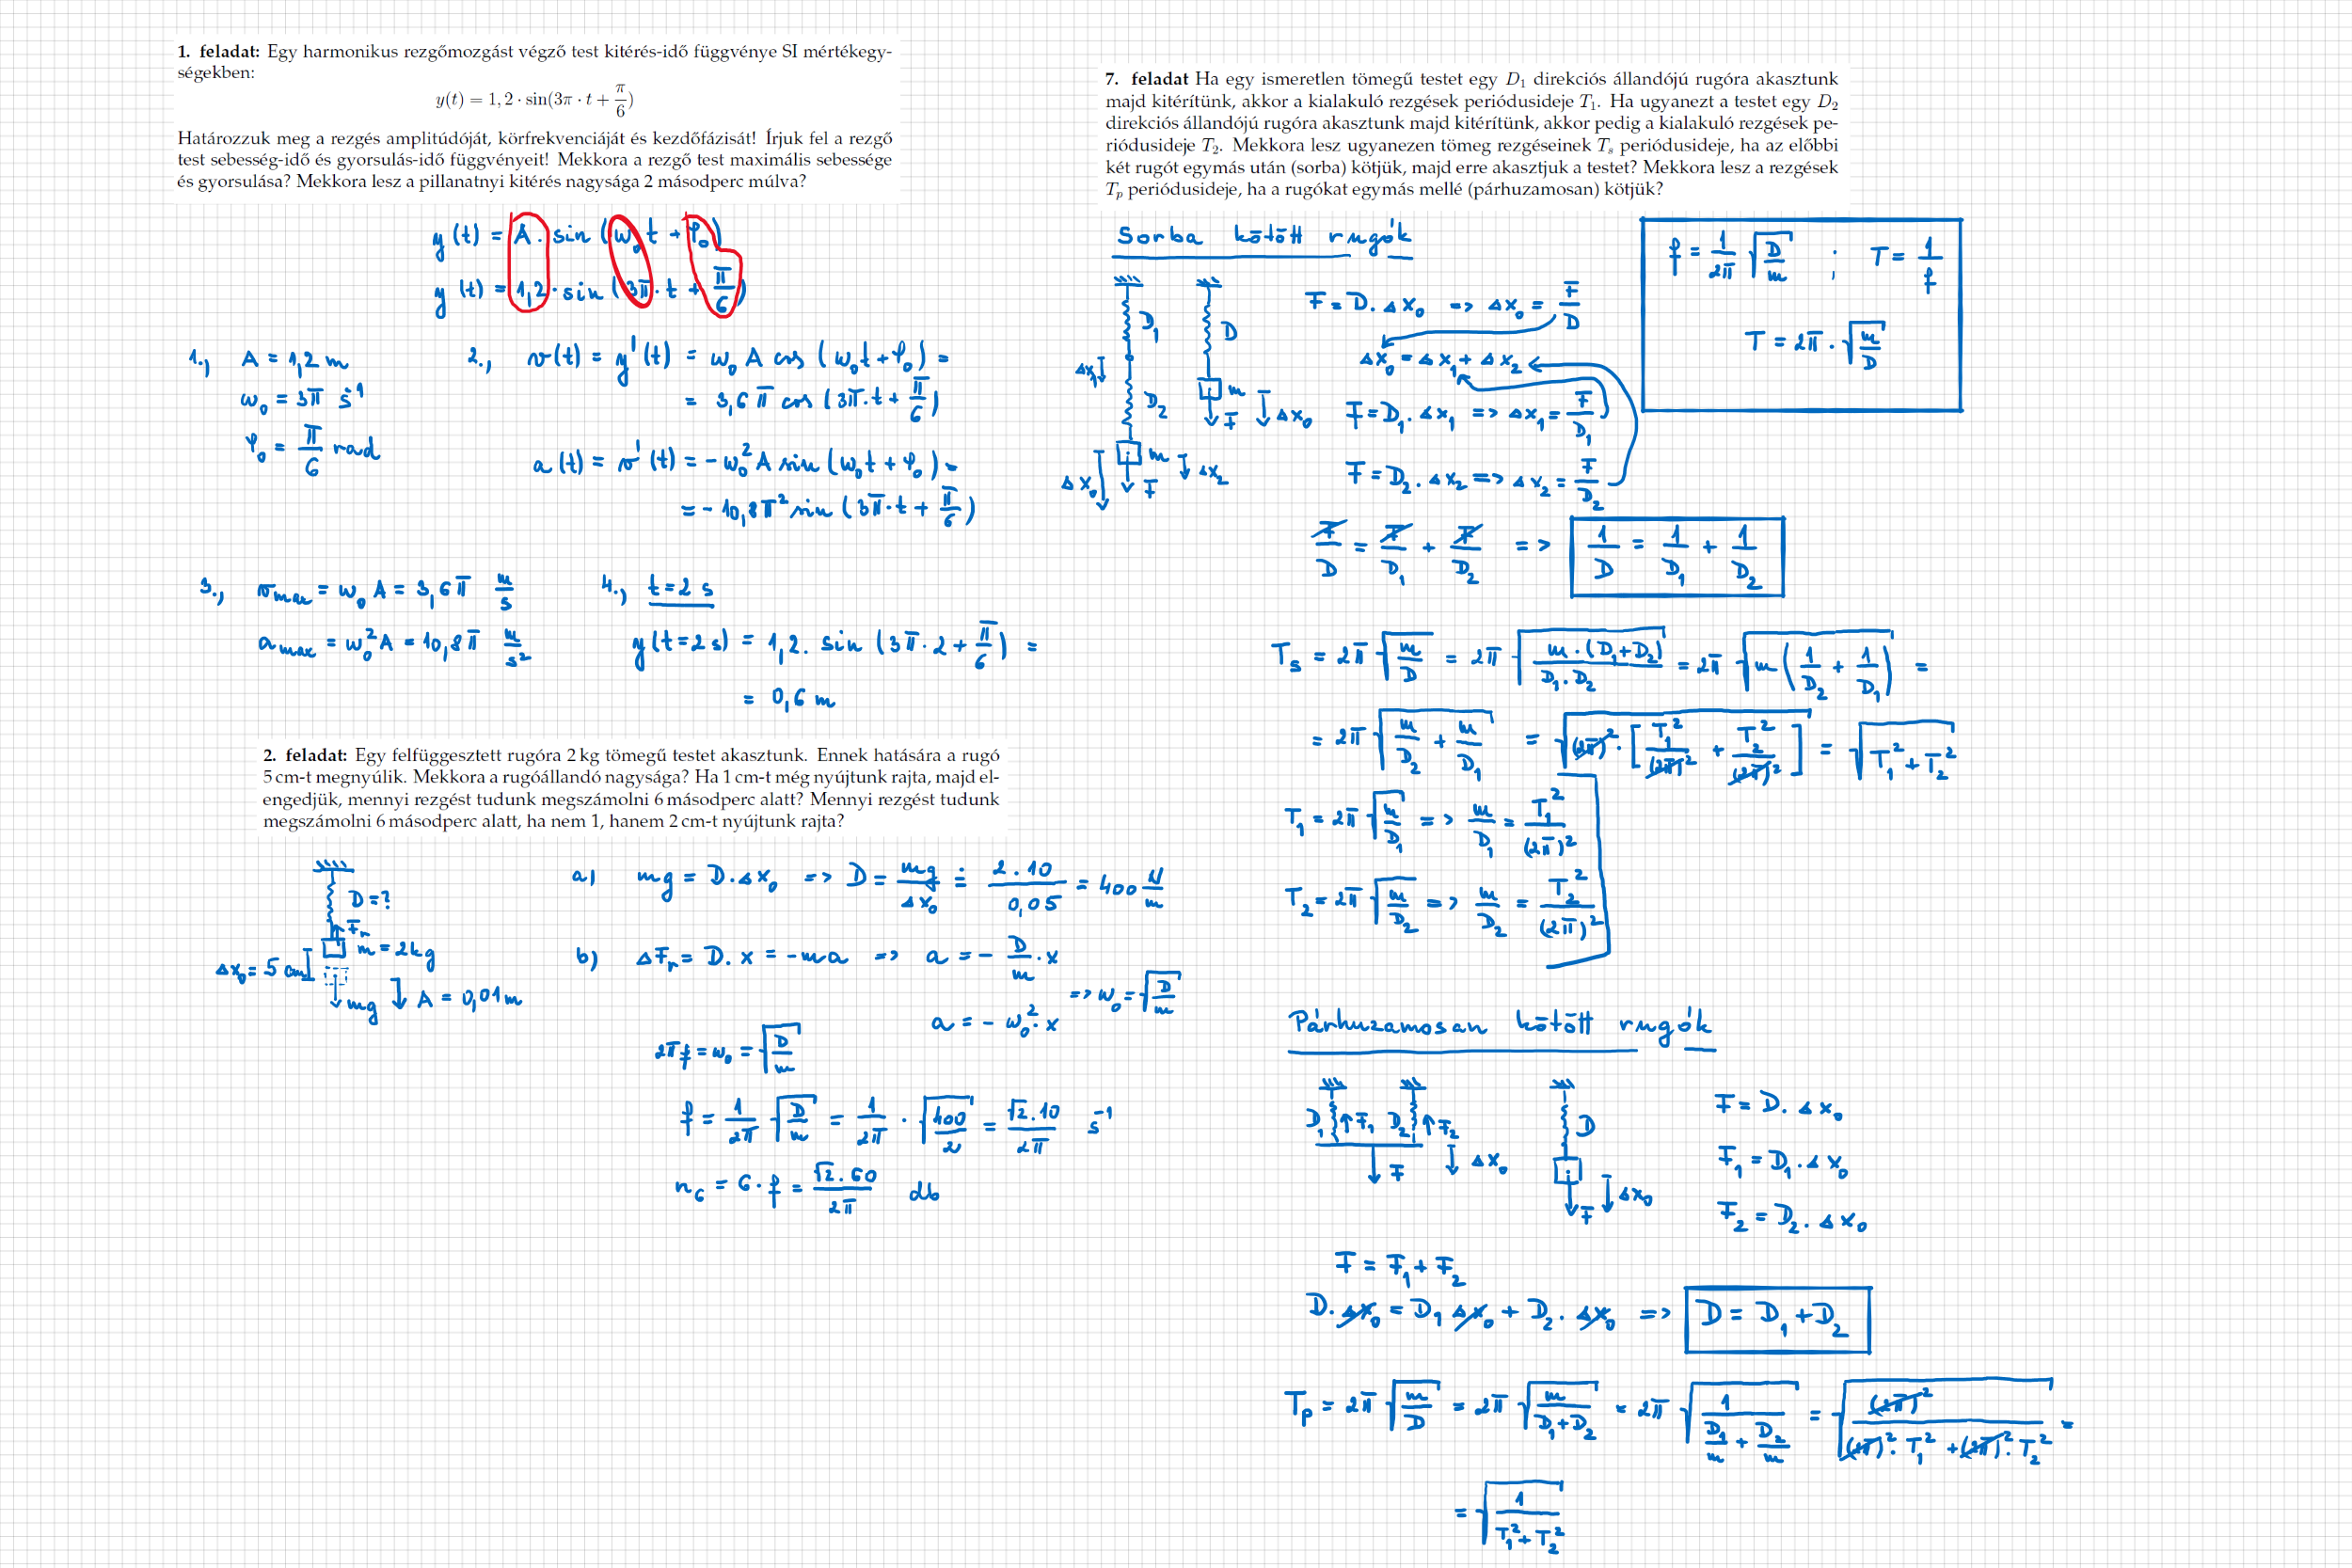 1. feladat: Egy harmonikus rezgőmozgást végző test kitérés-idő függvénye SI mértékegy-
ségekben:
y(t) = 1,2 · sin(3π · t + π/6)
Határozzuk meg a rezgés amplitúdóját, körfrekvenciáját és kezdőfázisát! Írjuk fel a rezgő
test sebesség-idő és gyorsulás-idő függvényeit! Mekkora a rezgő test maximális sebessége
és gyorsulása? Mekkora lesz a pillanatnyi kitérés nagysága 2 másodperc múlva?
y(t) = A · sin(ω₀t + φ₀)
y(t) = 1,2 · sin(3π · t + π/6)
1., A = 1,2 m
ω₀ = 3π s⁻¹
φ₀ = π/6 rad
2., v(t) = y'(t) = ω₀ A cos(ω₀t + φ₀) =
= 3,6π cos(3π·t + π/6)
a(t) = v'(t) = -ω₀² A sin(ω₀t + φ₀) =
= -10,8π² sin(3π·t + π/6)
3., v_max = ω₀ A = 3,6π m/s
a_max = ω₀² A = 10,8π m/s²
4., t = 2 s
y(t=2s) = 1,2 · sin(3π·2 + π/6) =
= 0,6 m
2. feladat: Egy felfüggesztett rugóra 2 kg tömegű testet akasztunk. Ennek hatására a rugó
5 cm-t megnyúlik. Mekkora a rugóállandó nagysága? Ha 1 cm-t még nyújtunk rajta, majd el-
engedjük, mennyi rezgést tudunk megszámolni 6 másodperc alatt? Mennyi rezgést tudunk
megszámolni 6 másodperc alatt, ha nem 1, hanem 2 cm-t nyújtunk rajta?
D = ?
F_r
m = 2kg
Δx₀ = 5 cm
mg
A = 0,01m
a) mg = D·Δx₀ => D = mg/Δx₀ = 2·10/0,05 = 400 N/m
b) ΔF_r = D·x = -ma => a = -D/m · x
a = -ω₀² · x => ω₀ = √(D/m)
2πf = ω₀ = √(D/m)
f = 1/2π √(D/m) = 1/2π · √(400/2) = √2·10/2π s⁻¹
n₆ = 6·f = √2·60/2π db
7. feladat Ha egy ismeretlen tömegű testet egy D₁ direkciós állandójú rugóra akasztunk
majd kitérítünk, akkor a kialakuló rezgések periódusideje T₁. Ha ugyanezt a testet egy D₂
direkciós állandójú rugóra akasztunk majd kitérítünk, akkor pedig a kialakuló rezgések pe-
riódusideje T₂. Mekkora lesz ugyanezen tömeg rezgéseinek Tₛ periódusideje, ha az előbbi
két rugót egymás után (sorba) kötjük, majd erre akasztjuk a testet? Mekkora lesz a rezgések
Tₚ periódusideje, ha a rugókat egymás mellé (párhuzamosan) kötjük?
Sorba kötött rugók
f = 1/2π √(D/m) ; T = 1/f
T = 2π · √(m/D)
D₁ D
Δx₁
D₂ m
F Δx₀
m Δx₂
Δx₀ F
F = D·Δx₀ => Δx₀ = F/D
Δx₀ = Δx₁ + Δx₂
F = D₁·Δx₁ => Δx₁ = F/D₁
F = D₂·Δx₂ => Δx₂ = F/D₂
F/D = F/D₁ + F/D₂ => 1/D = 1/D₁ + 1/D₂
Tₛ = 2π √(m/D) = 2π √(m·(D₁+D₂)/D₁·D₂) = 2π √(m(1/D₂ + 1/D₁)) =
= 2π √(m/D₂ + m/D₁) = √((2π)²·[T₁²/(2π)² + T₂²/(2π)²]) = √(T₁² + T₂²)
T₁ = 2π √(m/D₁) => m/D₁ = T₁²/(2π)²
T₂ = 2π √(m/D₂) => m/D₂ = T₂²/(2π)²
Párhuzamosan kötött rugók
D₁ F₁ D₂ F₂
F Δx₀
D
F Δx₀
F = D·Δx₀
F₁ = D₁·Δx₀
F₂ = D₂·Δx₀
F = F₁ + F₂
D·Δx₀ = D₁ Δx₀ + D₂·Δx₀ => D = D₁ + D₂
Tₚ = 2π √(m/D) = 2π √(m/(D₁+D₂)) = 2π √(1/(D₁/m + D₂/m)) = √((2π)²/((2π)²·T₁² + (2π)²·T₂²)) =
= √(1/(T₁² + T₂²))